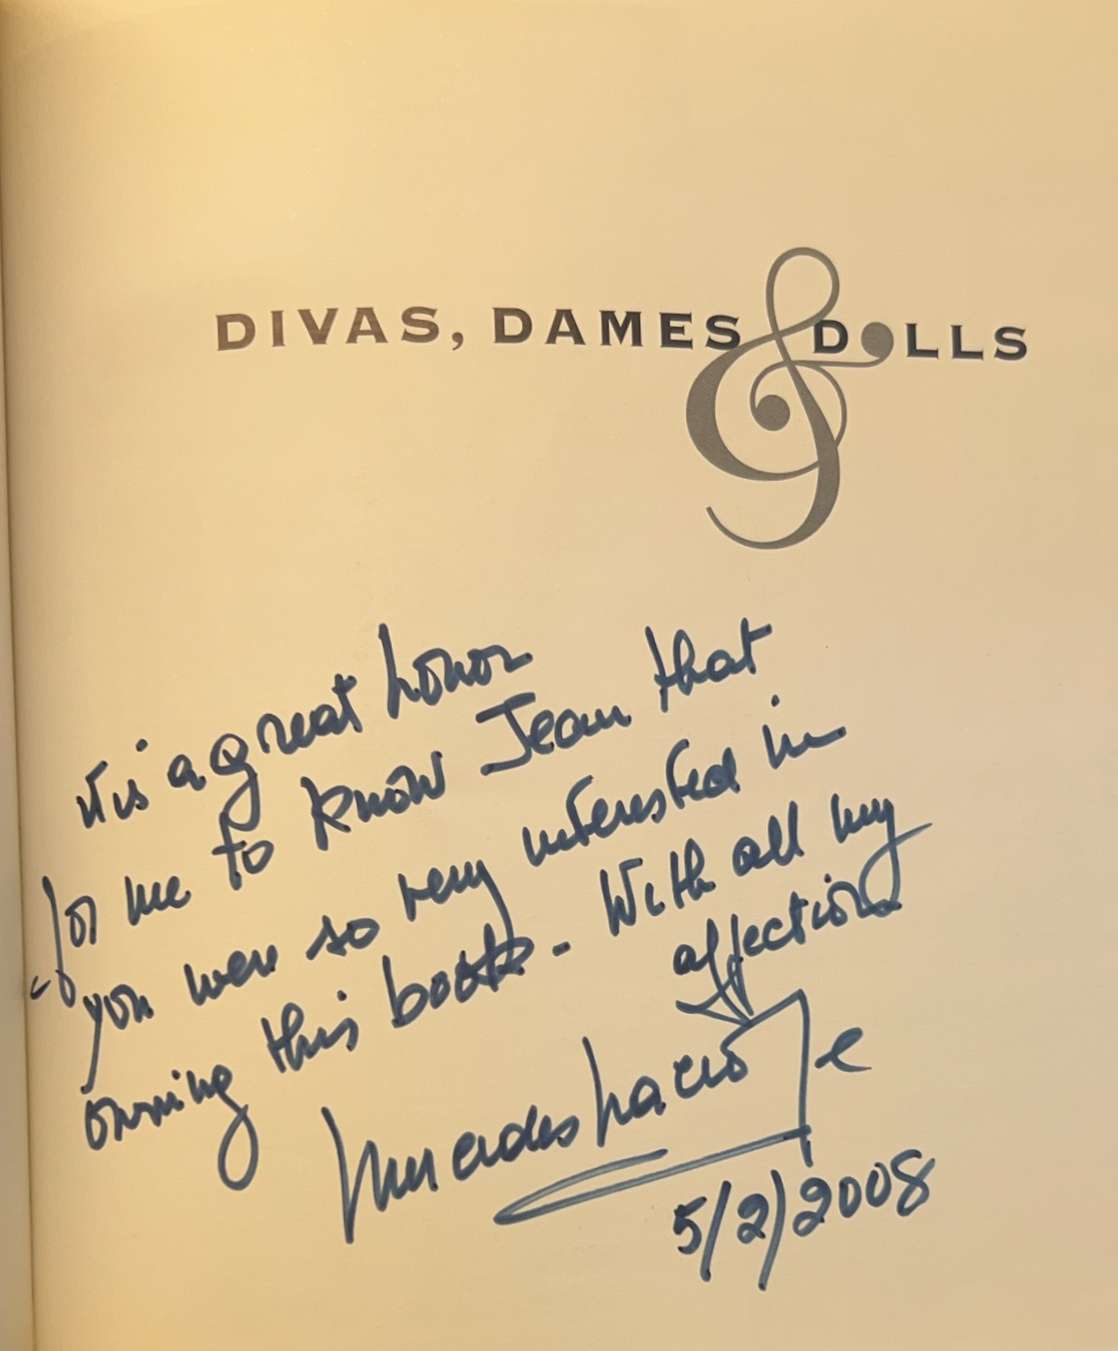 DIVAS, DAMES & DOLLS
it is a great honor
for me to know Jean that
you were so very interested in
owning this book - With all my
affection
Mercedes
5/2/2008